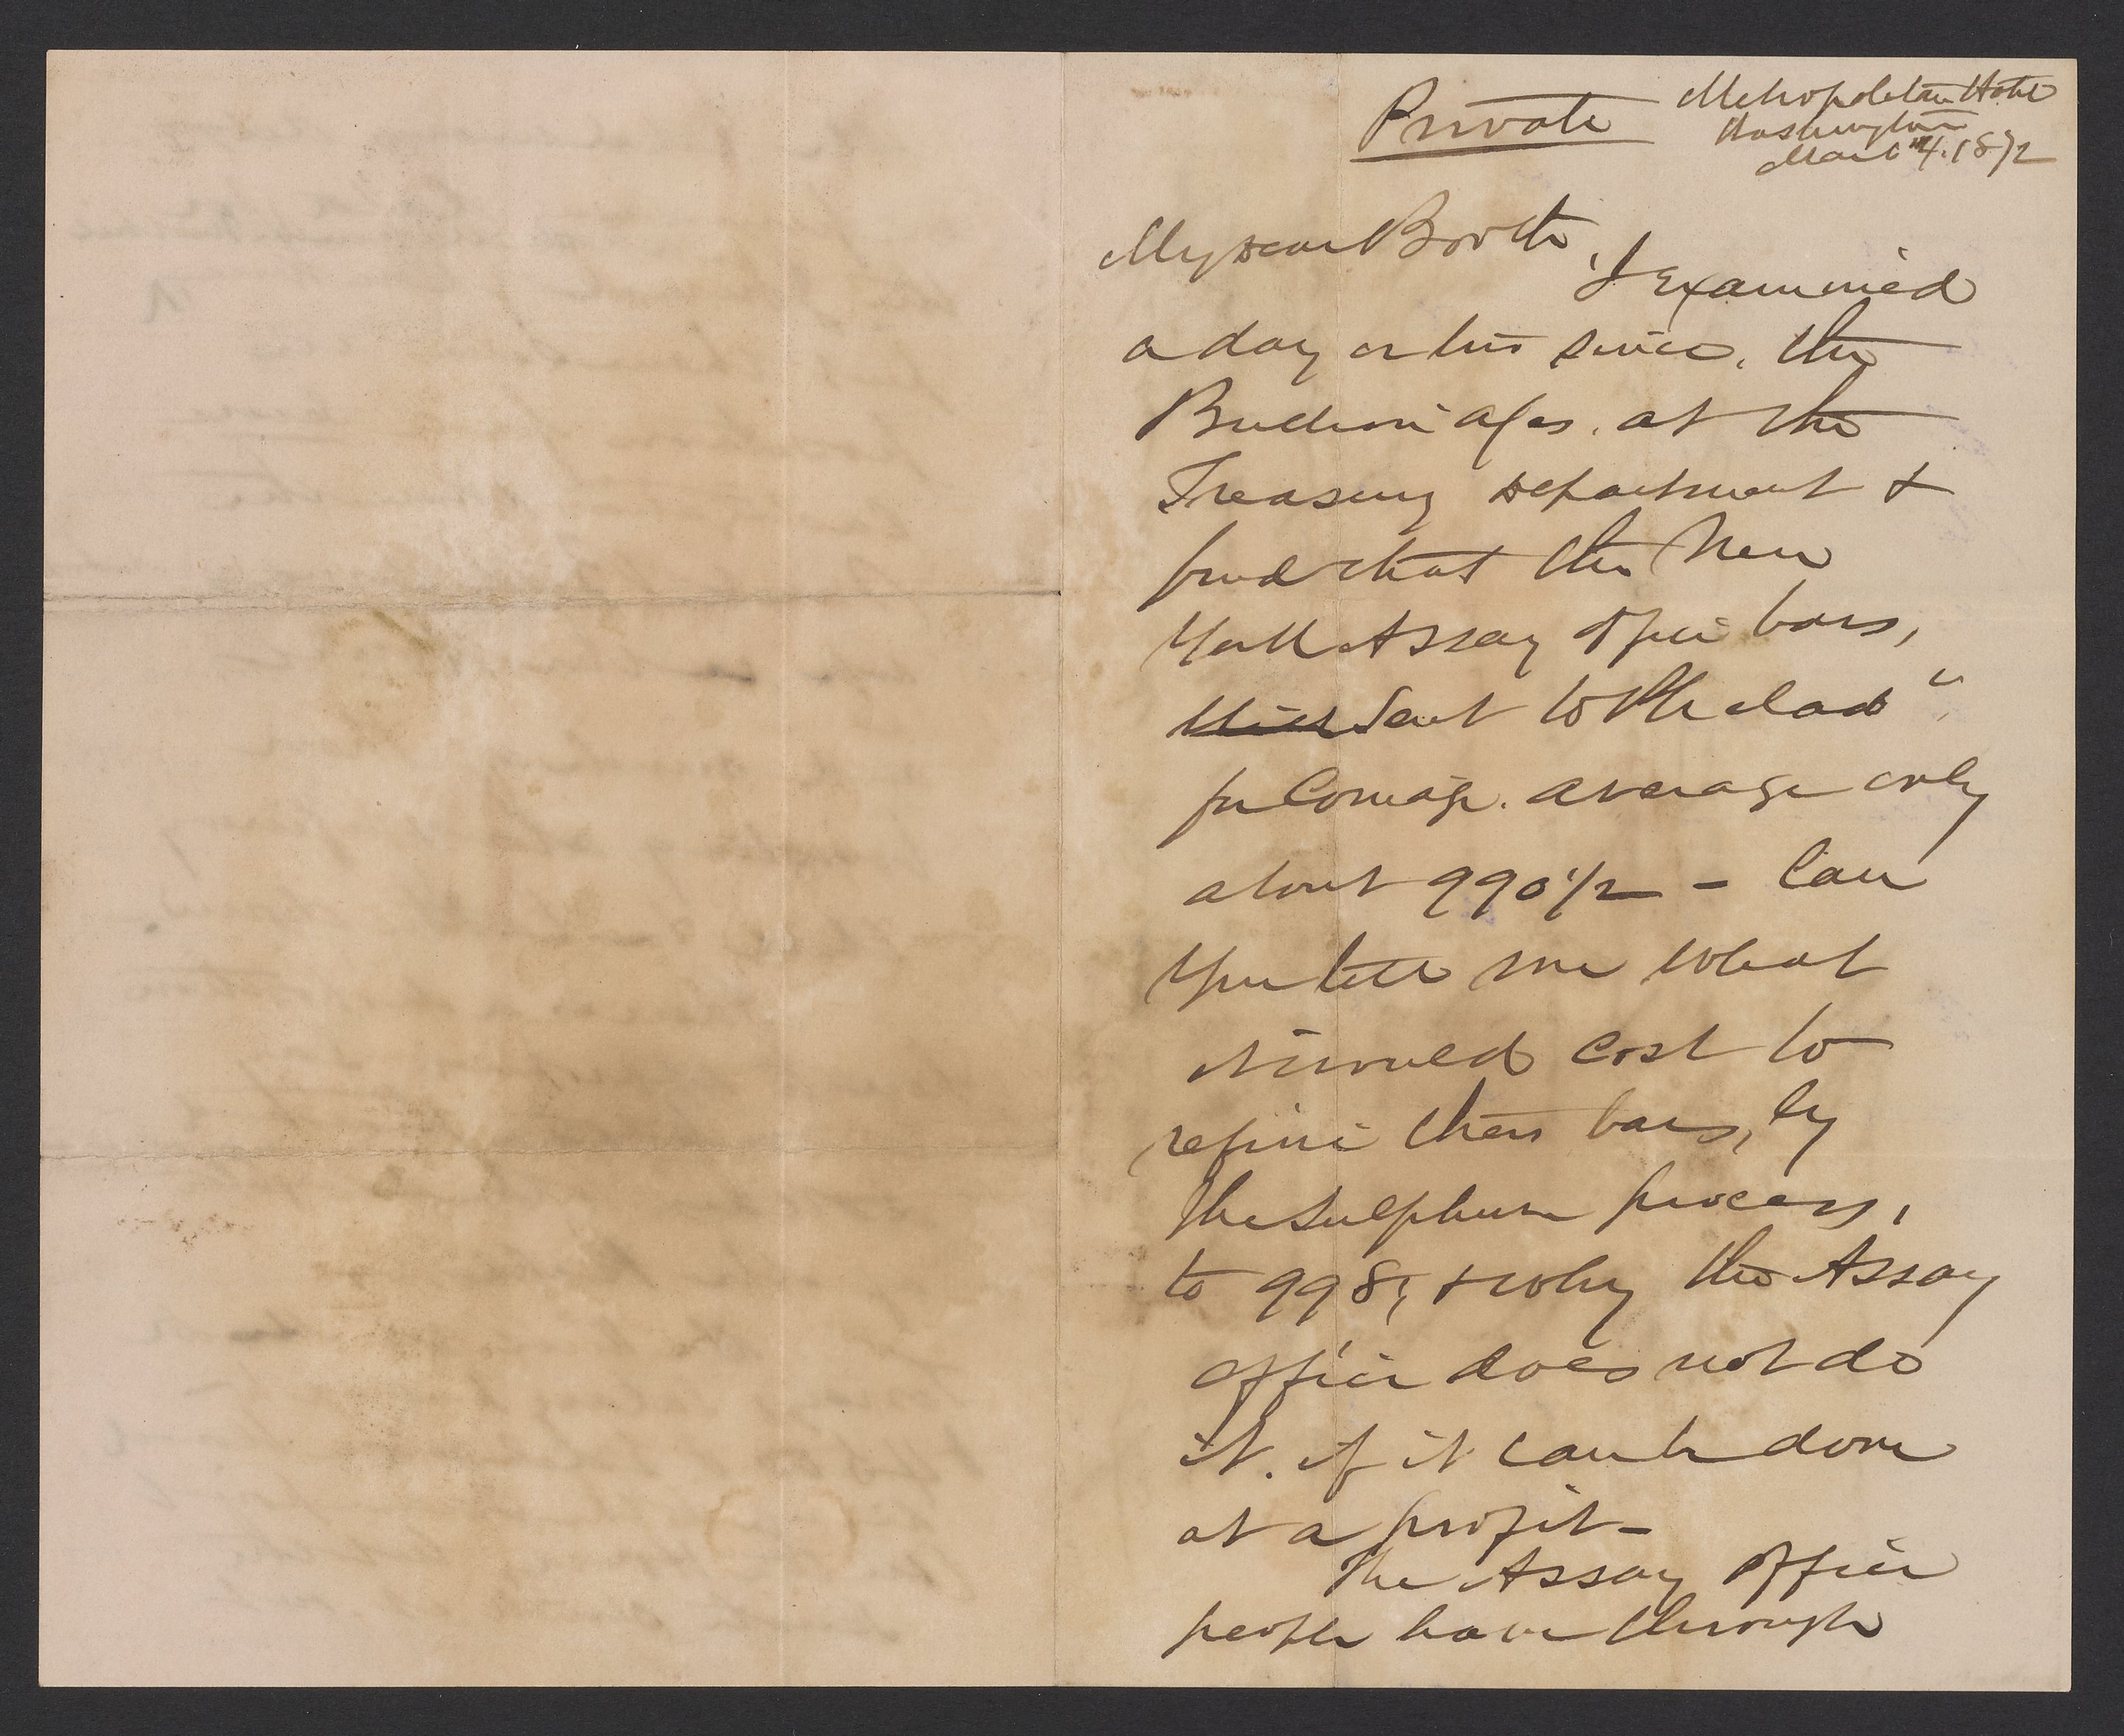 Private
Metropolitan Hotel
Washington
March 4. 1872
My dear Booth,
I Examined
a day or two since, the
Bullion a/cs. at the
Treasury Department &
find that the New
York Assay Office bars,
sent to Philada
for Coinage. average only
about 990 1/2 - Can
you tell me what
it would cost to
refine these bars, by
the Sulphuric process,
to 998, & why the Assay
office does not do
it. if it can be done
at a profit -
The Assay Office
people have through